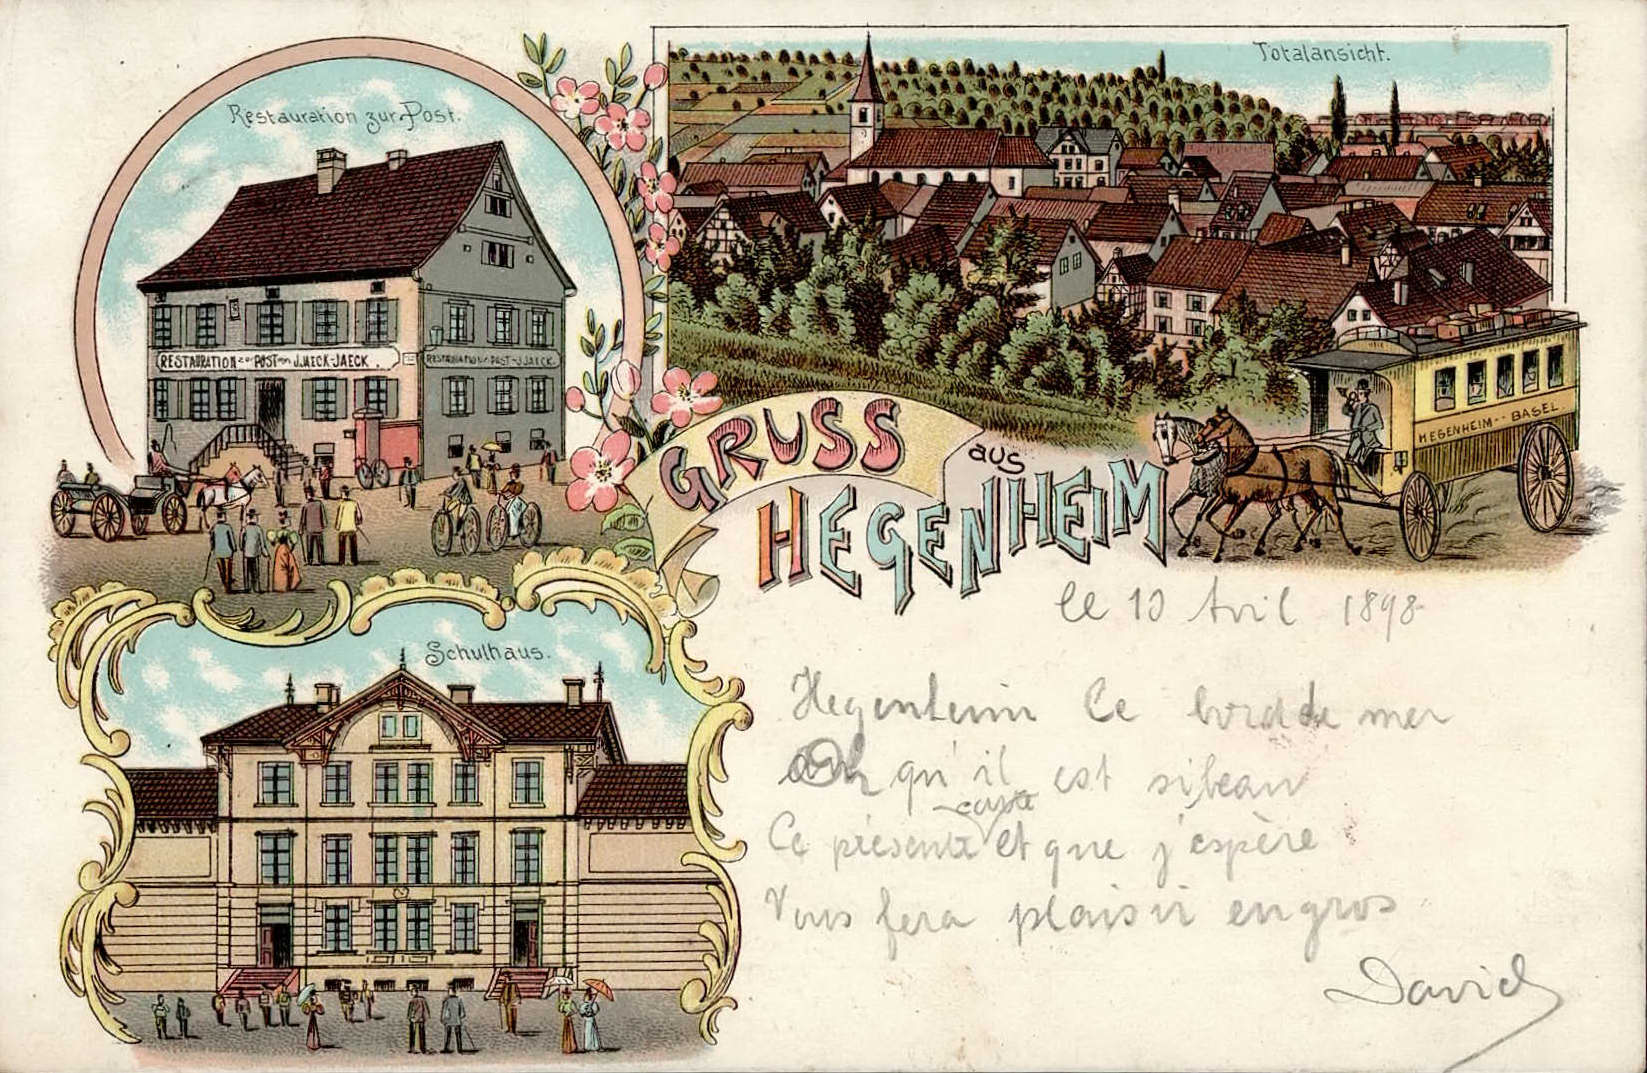 Restauration zur Post.
RESTAURATION zur POST von J. JAECK-JAECK.
RESTAURATION zur POST - J. JAECK.
Totalansicht.
HEGENHEIM - BASEL
GRUSS
aus
HEGENHEIM
Schulhaus.
le 10 Avril 1898
Hegenheim Ce bord de mer
qu'il est si beau
carte
Ce présente et que j'espère
Vous fera plaisir en gros
David